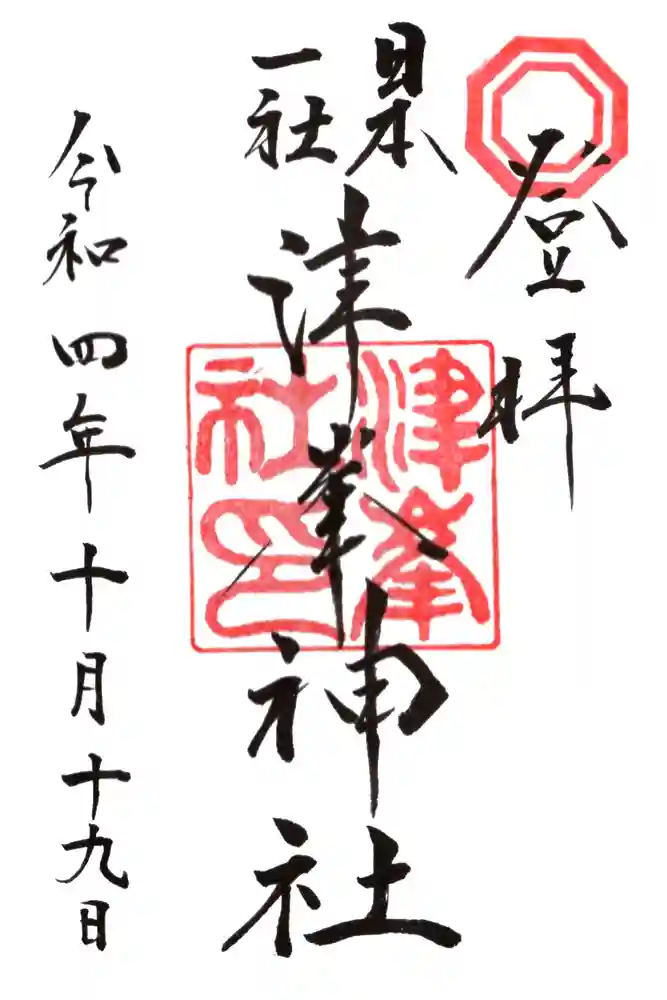 登拝
日本
一社
津峯神社
津峯
社印
令和四年十月十九日